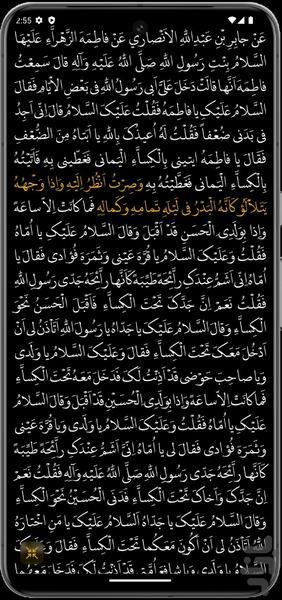 2:55
عَنْ جابِرِ بْنِ عَبْدِاللهِ الْاَنْصارِيِّ عَنْ فاطِمَةَ الزَّهْراَّءِ عَلَيْهَا
السَّلامُ بِنْتِ رَسُولِ اللهِ صَلَّى اللهُ عَلَيْهِ وَآلِهِ قالَ سَمِعْتُ
فاطِمَةَ اَنَّها قالَتْ دَخَلَ عَلَىَّ اَبى رَسُولُ اللهِ فى بَعْضِ الْاَيَّامِ فَقالَ
السَّلامُ عَلَيْكِ يا فاطِمَةُ فَقُلْتُ عَلَيْكَ السَّلامُ قالَ اِنّى اَجِدُ
فى بَدَنى ضُعْفاً فَقُلْتُ لَهُ اُعيذُكَ بِاللهِ يا اَبَتاهُ مِنَ الضُّعْفِ
فَقالَ يا فاطِمَةُ ايتينى بِالْكِساَّءِ الْيَمانى فَغَطّينى بِهِ فَاَتَيْتُهُ
بِالْكِساَّءِ الْيَمانى فَغَطَّيْتُهُ بِهِ وَصِرْتُ اَنْظُرُ اِلَيْهِ وَاِذا وَجْهُهُ
يَتَلَأْلَؤُ كَاَنَّهُ الْبَدْرُ فى لَيْلَةِ تَمامِهِ وَكَمالِهِ فَما كانَتْ اِلاّ ساعَةً
وَاِذا بِوَلَدِىَ الْحَسَنِ قَدْ اَقْبَلَ وَقالَ السَّلامُ عَلَيْكِ يا اُمّاهُ
فَقُلْتُ وَعَلَيْكَ السَّلامُ يا قُرَّةَ عَيْنى وَثَمَرَةَ فُؤادى فَقالَ يا
اُمّاهُ اِنّى اَشَمُّ عِنْدَكِ راَّئِحَةً طَيِّبَةً كَاَنَّها راَّئِحَةُ جَدّى رَسُولِ اللهِ
فَقُلْتُ نَعَمْ اِنَّ جَدَّكَ تَحْتَ الْكِساَّءِ فَاَقْبَلَ الْحَسَنُ نَحْوَ
الْكِساَّءِ وَقالَ السَّلامُ عَلَيْكَ يا جَدّاهُ يا رَسُولَ اللهِ اَتَاْذَنُ لى اَنْ
اَدْخُلَ مَعَكَ تَحْتَ الْكِساَّءِ فَقالَ وَعَلَيْكَ السَّلامُ يا وَلَدى
وَيا صاحِبَ حَوْضى قَدْ اَذِنْتُ لَكَ فَدَخَلَ مَعَهُ تَحْتَ الْكِساَّءِ
فَما كانَتْ اِلاّ ساعَةً وَاِذا بِوَلَدِىَ الْحُسَيْنِ قَدْ اَقْبَلَ وَقالَ السَّلامُ
عَلَيْكِ يا اُمّاهُ فَقُلْتُ وَعَلَيْكَ السَّلامُ يا وَلَدى وَيا قُرَّةَ عَيْنى
وَثَمَرَةَ فُؤادى فَقالَ لى يا اُمّاهُ اِنّى اَشَمُّ عِنْدَكِ راَّئِحَةً طَيِّبَةً
كَاَنَّها راَّئِحَةُ جَدّى رَسُولِ اللهِ صَلَّى اللهُ عَلَيْهِ وَآلِهِ فَقُلْتُ نَعَمْ
اِنَّ جَدَّكَ وَاَخاكَ تَحْتَ الْكِساَّءِ فَدَنَى الْحُسَيْنُ نَحْوَ الْكِساَّءِ
وَقالَ السَّلامُ عَلَيْكَ يا جَدّاهُ اَلسَّلامُ عَلَيْكَ يا مَنِ اخْتارَهُ
اللهُ اَتَاْذَنُ لى اَنْ اَكُونَ مَعَكُما تَحْتَ الْكِساَّءِ فَقالَ وَعَلَيْكَ
السَّلامُ يا وَلَدى وَيا شافِعَ اُمَّتى قَدْ اَذِنْتُ لَكَ فَدَخَلَ مَعَهُما